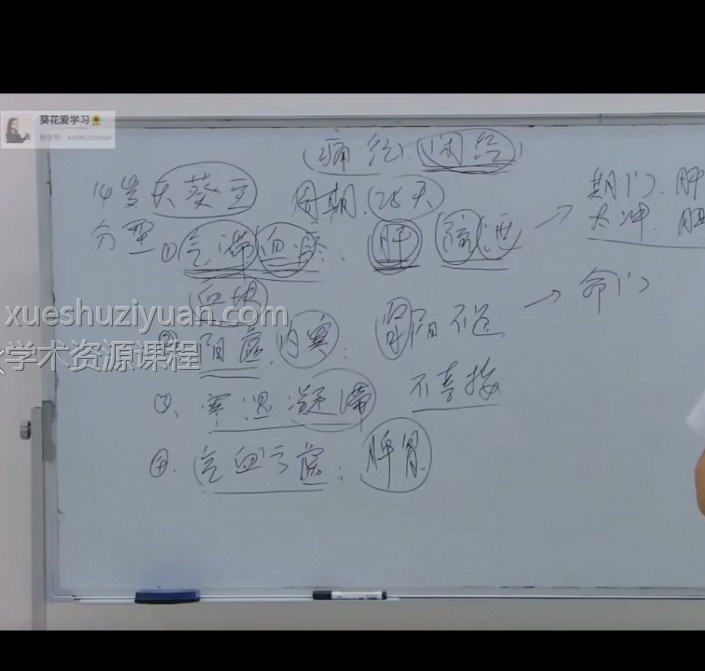 葵花爱学习🌻
微信号:
(痛经) (闭经)
14岁 天葵至 周期 (28天)
期门. 肝
分型 ① 气滞血瘀: 肝
太冲.
血块
xueshuziyuan.com
命门
阳虚内寒: 肾阳不足
学术资源课程
不喜按
③、寒湿凝滞
④、气血亏虚: 脾胃